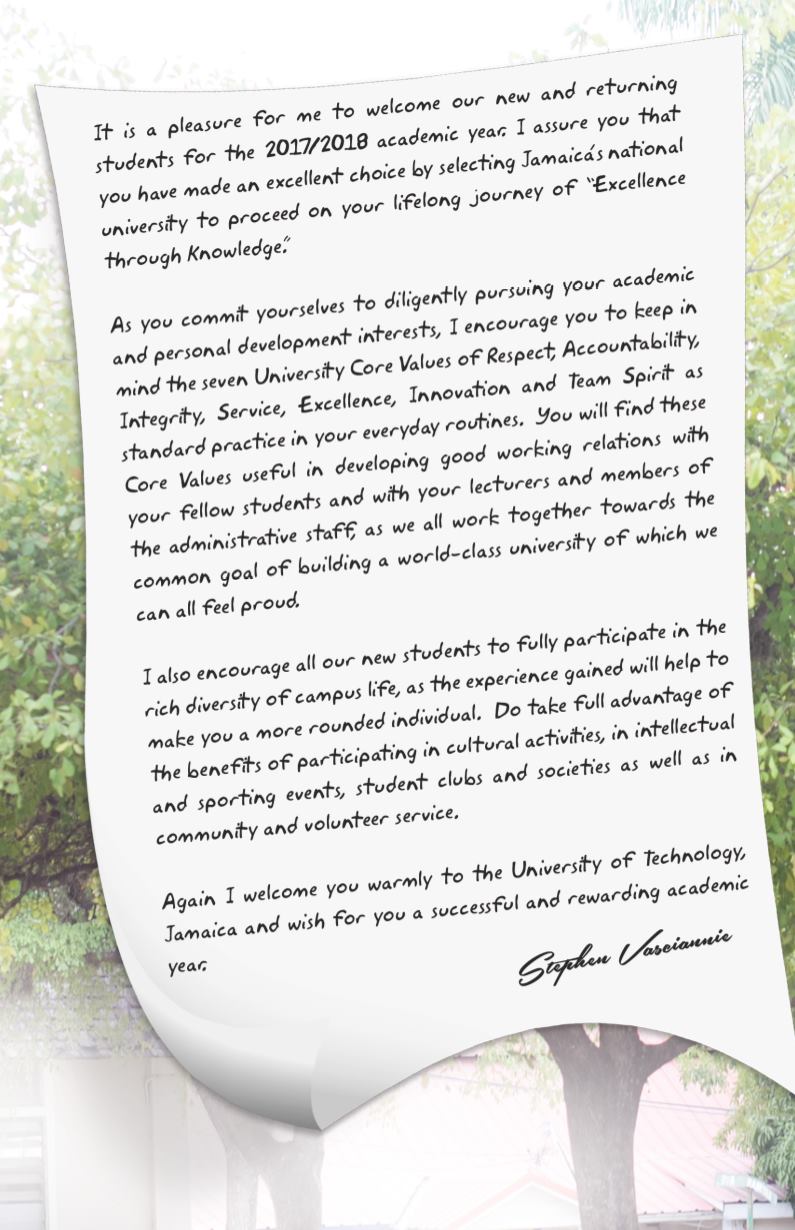 It is a pleasure for me to welcome our new and returning
students for the 2017/2018 academic year. I assure you that
you have made an excellent choice by selecting Jamaica's national
university to proceed on your lifelong journey of "Excellence
through Knowledge."
As you commit yourselves to diligently pursuing your academic
and personal development interests, I encourage you to keep in
mind the seven University Core Values of Respect, Accountability,
Integrity, Service, Excellence, Innovation and Team Spirit as
standard practice in your everyday routines. You will find these
Core Values useful in developing good working relations with
your fellow students and with your lecturers and members of
the administrative staff, as we all work together towards the
common goal of building a world-class university of which we
can all feel proud.
I also encourage all our new students to fully participate in the
rich diversity of campus life, as the experience gained will help to
make you a more rounded individual. Do take full advantage of
the benefits of participating in cultural activities, in intellectual
and sporting events, student clubs and societies as well as in
community and volunteer service.
Again I welcome you warmly to the University of Technology,
Jamaica and wish for you a successful and rewarding academic
year.
Stephen Vasciannie